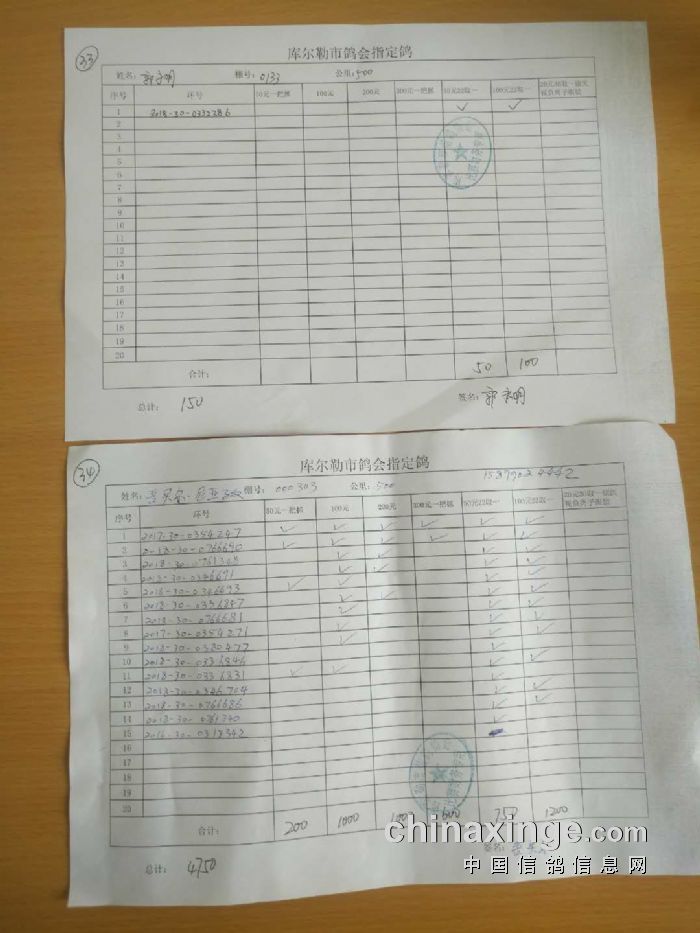 33
库尔勒市鸽会指定鸽
姓名: 郭永明 棚号: 0133 公里: 500
序号 环号 50元一把抓 100元 200元 300元一把抓 50元22取一 100元22取一
1 2018-30-0332386 ✓ ✓
2
3
4
5
6
7
8
9
10
11
12
13
14
15
16
17
18
19
20
合计: 50 100
总计: 150 签名: 郭永明
34
库尔勒市鸽会指定鸽
姓名: 棚号: 000303 公里: 500
序号 环号 50元一把抓 100元 200元 300元一把抓 50元22取一 100元22取一
1 2017-30-0354247 ✓ ✓ ✓ ✓ ✓ ✓
2 2018-30-0766690 ✓ ✓ ✓ ✓ ✓ ✓
3 2018-30-0761308 ✓ ✓ ✓ ✓
4 2018-30-0346691 ✓ ✓ ✓ ✓
5 2018-30-0346693 ✓ ✓ ✓ ✓
6 2018-30-0336847 ✓ ✓ ✓
7 2018-30-0766681 ✓ ✓ ✓
8 2017-30-0354271 ✓ ✓ ✓
9 2018-30-0380477 ✓ ✓
10 2018-30-0336846 ✓ ✓
11 2018-30-0336831 ✓ ✓ ✓
12 2018-30-0346704 ✓ ✓
13 2018-30-0766686 ✓ ✓
14 2018-30-0761340 ✓
15 2016-30-0318342
16
17
18
19
20
合计: 200 1000 600 750 1200
总计: 4750 签名:
chinaxinge.com
中国信鸽信息网